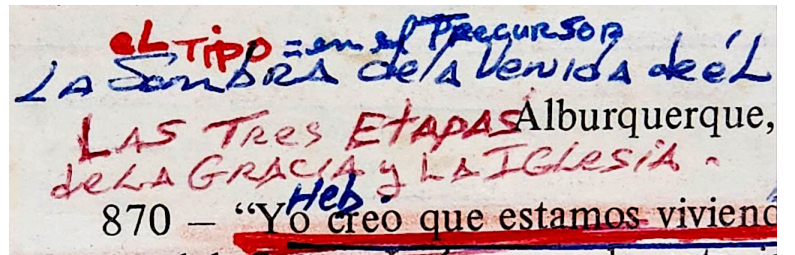 eL TIPO = en el PRECURSOR
LA SomBRA de la Venida de éL
Alburquerque,
LAS TRes ETAPAS
de LA GRACIA y LA IGLesiA.
Heb.
870 – “Yo creo que estamos viviend